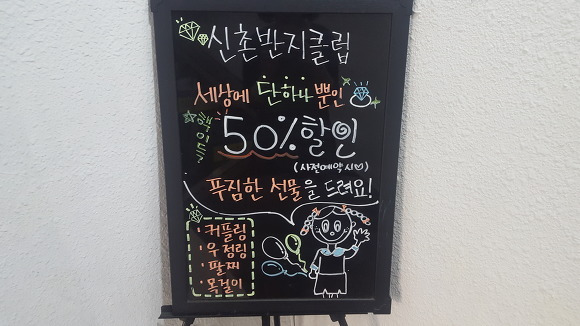 신촌반지클럽
세상에 단하나뿐인
핵이득
50%할인
(사전예약시♡)
푸짐한 선물을 드려요!
· 커플링
· 우정링
· 팔찌
· 목걸이